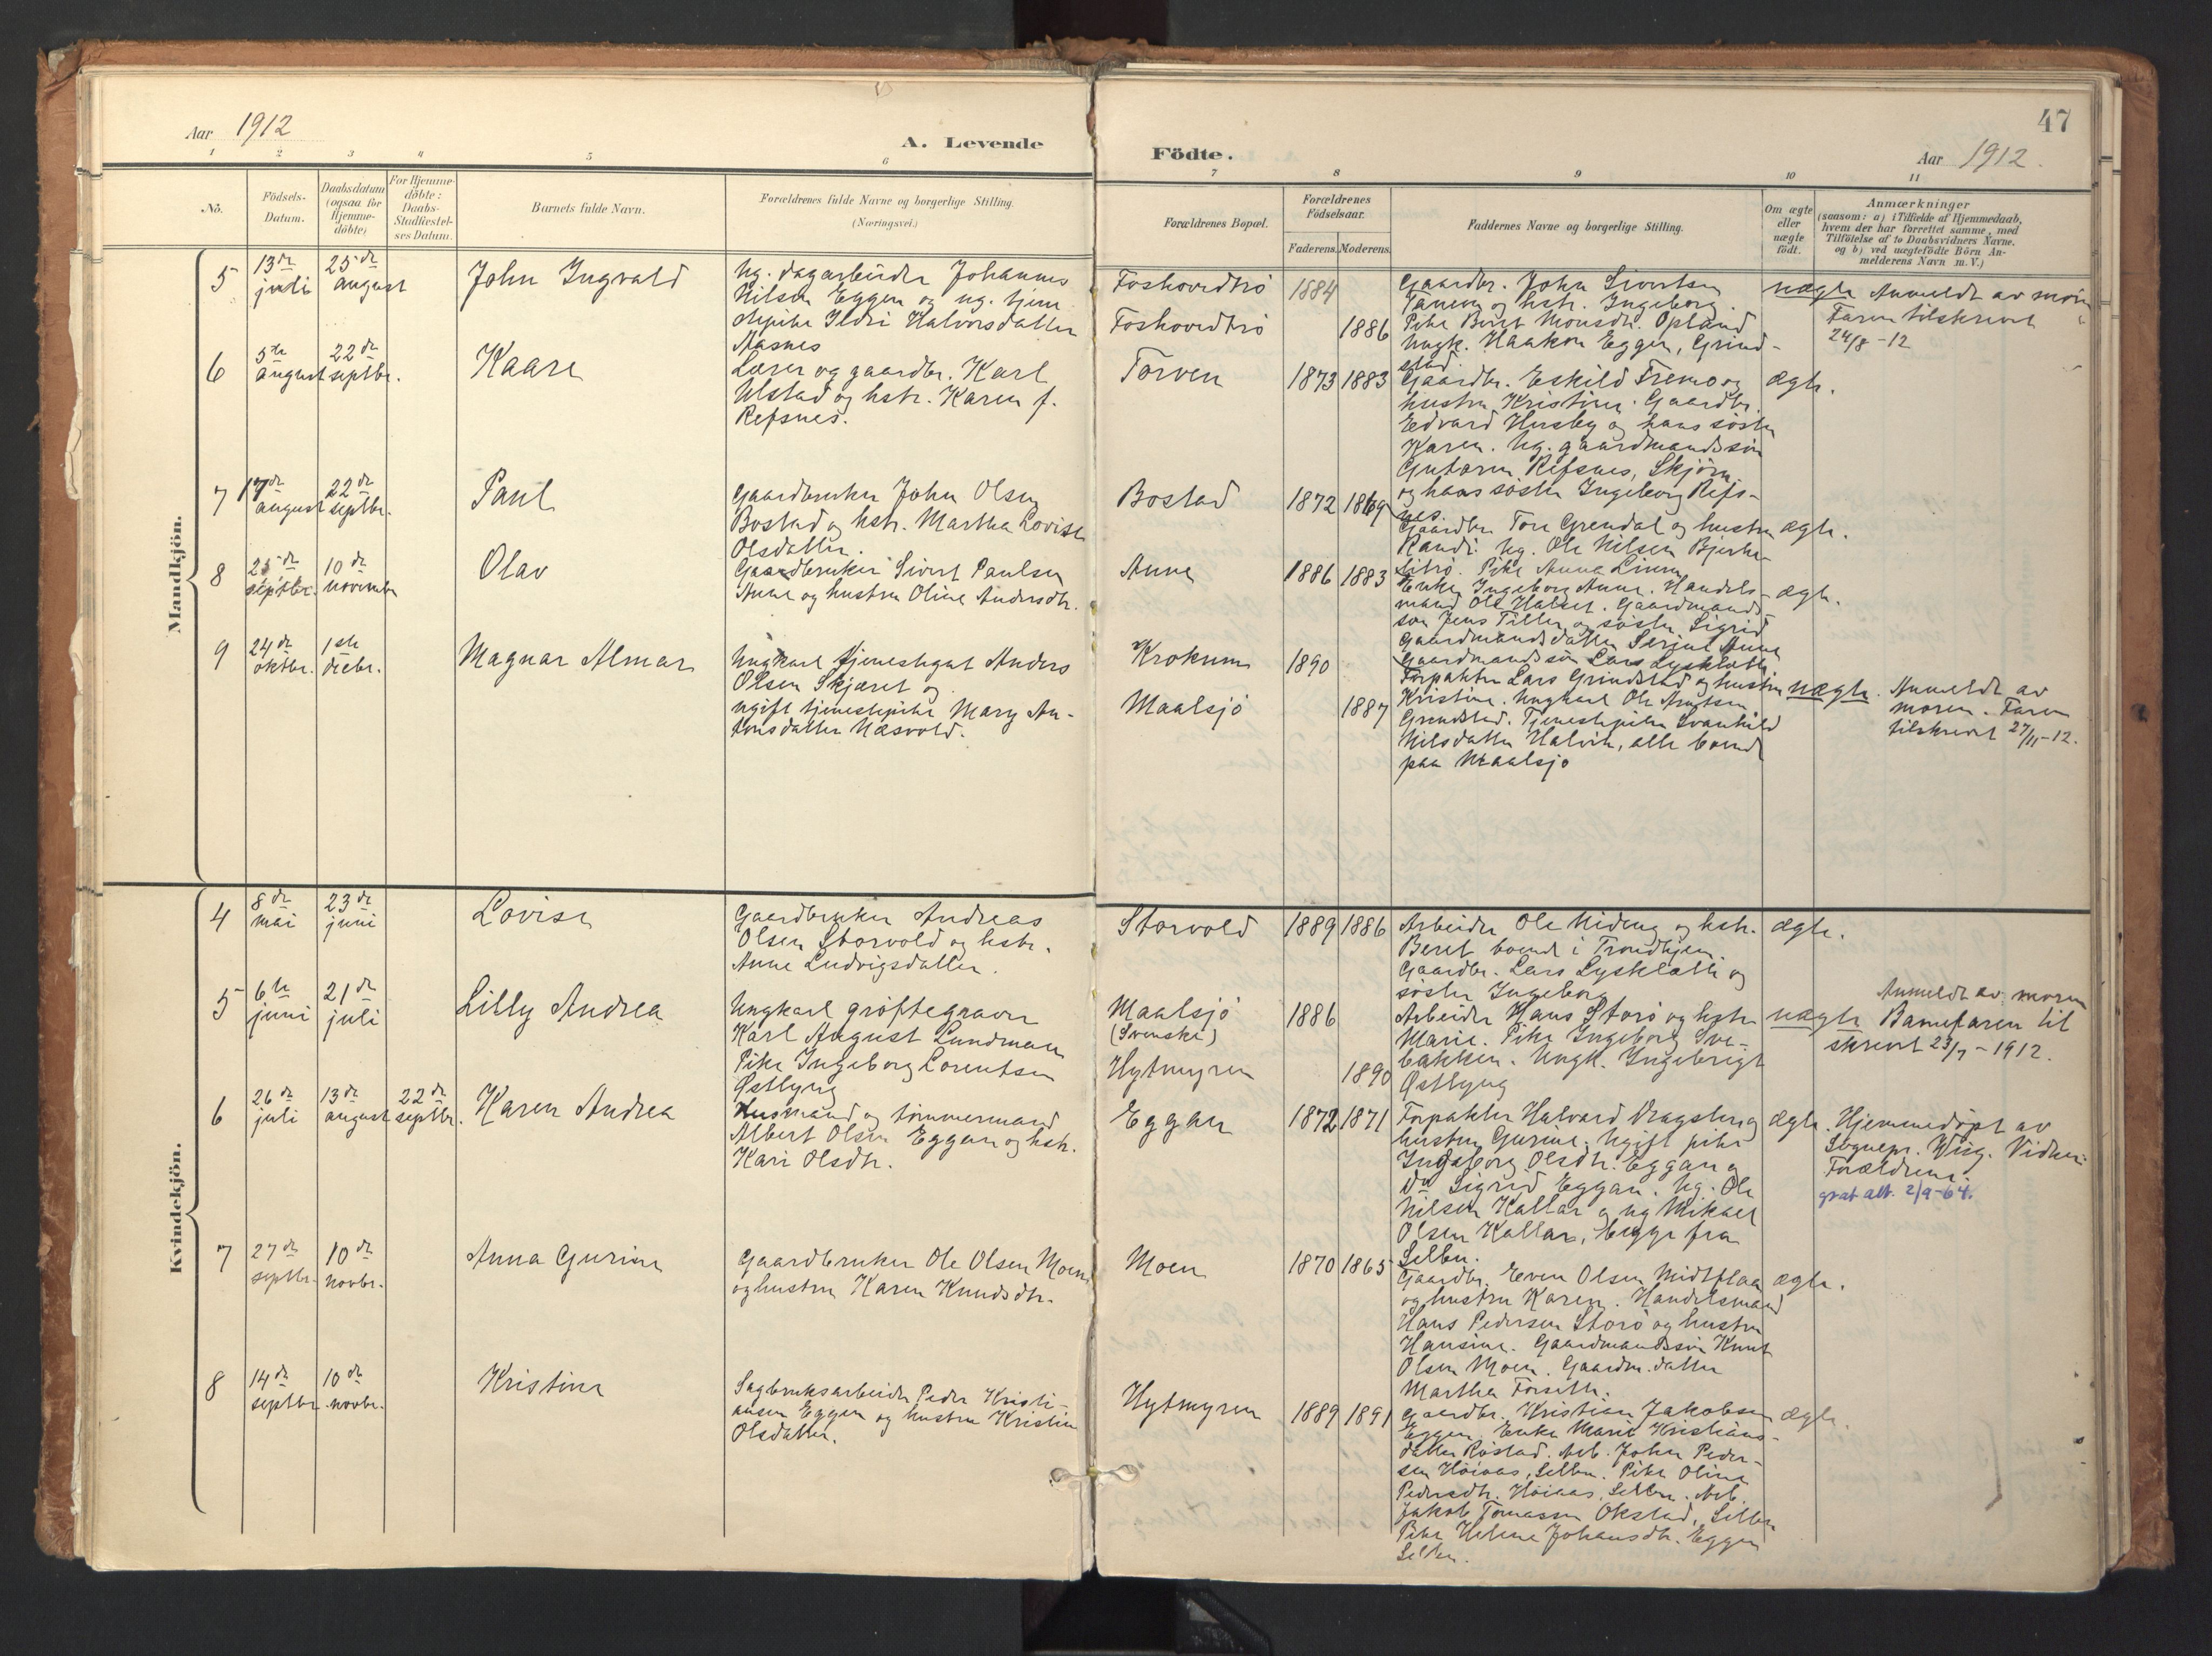 47
Aar 1912
A. Levende
Födte.
Aar 1912.
1 2 3 4 5 6 7 8 9 10 11
No.
Födsels-
Datum.
Daabsdatum
(ogsaa for
Hjemme-
döbte)
For Hjemme-
döbte:
Daabs-
Stadfæstel-
ses Datum.
Barnets fulde Navn.
Forældrenes fulde Navne og borgerlige Stilling.
(Næringsvei.)
Forældrenes Bopæl.
Forældrenes
Födselsaar.
Faderens. Moderens.
Faddernes Navne og borgerlige Stilling.
Om ægte
eller
uægte
födt.
Anmærkninger
(saasom: a) i Tilfælde af Hjemmedaab,
hvem der har forrettet samme, med
Tilföielse af to Daabsvidners Navne,
og b) ved uægtefödte Börn An-
melderens Navn m. V.)
Mandkjön.
5
13de
juli
25de
august
John Ingvald
Ug. dagarbeider Johannes
Nilsen Eggen og ug. tjene
stepike Ildri Halvorsdatter
Aasnes
Foshovedtrö
Foshovedtrö
1884
1886
Gaardbr. John Sivertsen
Tanem og hstr. Ingeborg.
Pike Beret Monsdr. Opland
Ungk. Haakon Eggen, Grind-
stad.
uægte
Anmeldt av moren
Faren tilskrevet
24/8-12
6
5te
august
22de
septbr.
Kaare
Lærer og gaardbr. Karl
Ulstad og hstr. Karen f.
Refsnes.
Torven
1873 1883
Gaardbr. Eskild Fremo og
hustru Kristine. Gaardbr.
Edvard Husby og hans söster
Karen. Ug. gaardmandssön
Gutorm Refsnes, Skjörn
og hans söster Ingeborg Refs-
nes.
ægte.
7
17de
august
22de
septbr.
Paul
Gaardbruker John Olsen
Bostad og hstr. Martha Lovise
Olsdatter.
Bostad
1872 1869
Gaardbr. Tore Grendal og hustru
Randi. Ug. Ole Nilsen Bjerke-
litrö. Pike Anna Linum
ægte.
8
25de
septbr.
10de
november
Olav
Gaardbruker Sivert Paulsen
Aune og hustru Oline Andersdtr.
Aune
1886 1883
Enke Ingeborg Aune. Handels-
mand Ole Halset. Gaardmands-
sön Jens Tiller og söster Sigrid
Gaardmandsdatter Serine Aune
Gaardmandssön Lars Lysklætt
ægte.
9
24de
oktbr.
1ste
decbr.
Magnar Almar
Ungkarl tjenestegut Anders
Olsen Skjæret og
ugift tjenestepike Mary An-
tonsdatter Næsvold.
Krokum
Maalsjö
1890
1887
Forpakter Lars Grindstad og hustru
Kristine. Ungkarl Ole Arntsen
Grindstad. Tjenestepiken Svanhild
Nilsdatter Halvik, alle boende
paa Maalsjö
uægte.
Anmeldt av
moren. Faren
tilskrevet 27/11-12.
Kvindekjön.
4
8de
mai
23de
juni
Lovise
Gaardbruker Andreas
Olsen Storvold og hstr.
Anne Ludvigsdatter.
Storvold
1889 1886
Arbeider Ole Nideng og hstr.
Beret boende i Trondhjem.
Gaardbr. Lars Lysklætt og
söster Ingeborg
ægte.
5
6te
juni
21de
juli
Lilly Andrea
Ungkarl gröftegraver
Karl August Lundman
Pike Ingeborg Lorentsen
Östbyng
Maalsjö
(Svenske)
Hytmyren
1886
1890
Arbeider Hans Storö og hstr
Marie. Pike Ingeborg Sve-
bakken. Ungk. Ingebrigt
Östbyng
uægte
Anmeldt av moren
Barnefaren til
skrevet 23/7-1912.
6
26de
juli
13de
august
22de
septbr.
Karen Andrea
Husmand og tömmermand
Albert Olsen Eggan og hstr.
Kari Olsdtr.
Eggan
1872 1871
Forpakter Halvard Dragsten og
hustru Gurine. Ugift pike
Ingeborg Olsdtr. Eggan og
do Sigrid Eggan. Ug. Ole
Nilsen Kallar og ug Mikael
Olsen Kallar, begge fra
Selbu.
ægte.
Hjemmedöpt av
Sognepr. Wiig. Vidner:
Forældrene.
grat att. 2/9-64.
7
27de
septbr.
10de
novbr.
Anna Gurine
Gaardbruker Ole Olsen Moen
og hustru Karen Knudsdtr.
Moen
1870 1865
Gaardbr. Even Olsen Midtflaa
og hustru Karen. Handelsmand
Hans Pedersen Storö og hustru
Hansine. Gaardmandssön Knut
Olsen Moen. Gaardm.datter
Martha Forseth.
ægte.
8
14de
septbr.
10de
novbr.
Kristine
Sagbruksarbeider Peder Kristi-
ansen Eggen og hustru Kristine
Olsdatter.
Hytmyren
1889 1891
Gaardbr. Kristian Jakobsen
Eggen. Enke Marit Kristians-
datter Röstad. Arb. John Peder-
sen Höiaas, Selbu. Pike Oline
Pedersdtr. Höiaas, Selbu. Arb.
Jakob Tomassen Okstad, Selbu
Pike Helene Johansdtr. Eggen
Selbu.
ægte.